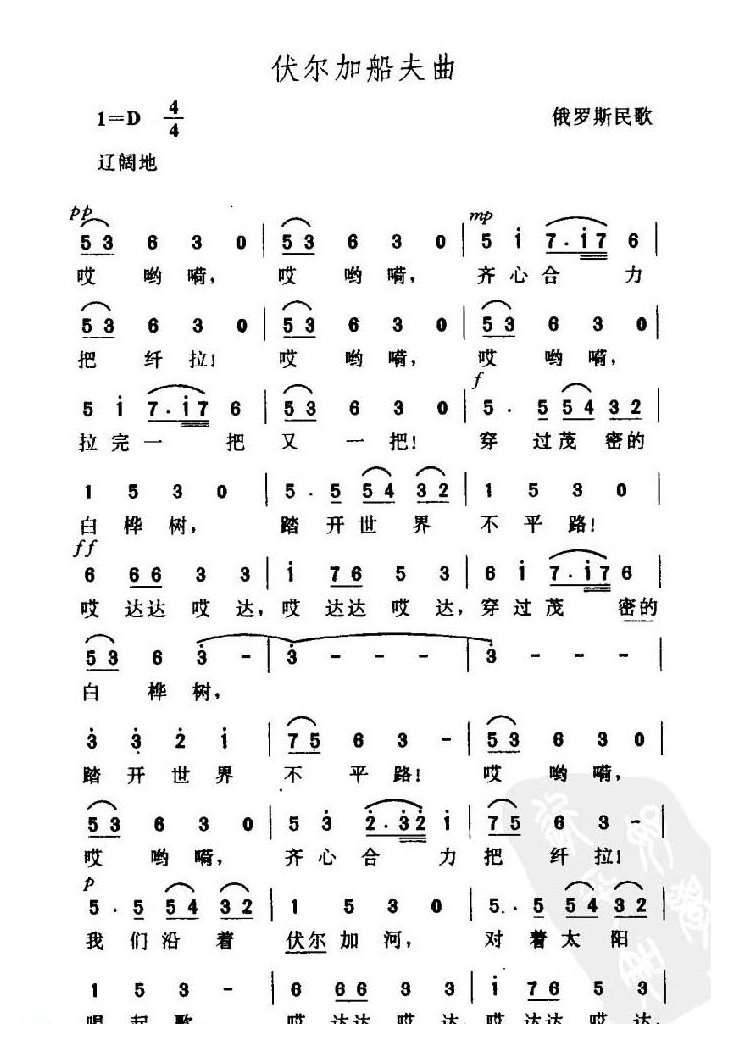 伏尔加船夫曲
1=D 4/4 俄罗斯民歌
辽阔地
pp mp
53 6 3 0 | 53 6 3 0 | 5 i 7·i7 6
哎哟嗬， 哎哟嗬， 齐心合力
53 6 3 0 | 53 6 3 0 | 53 6 3 0
把纤拉！ 哎哟嗬， 哎哟嗬，
f
5 i 7·i7 6 | 53 6 3 0 | 5· 5 54 32
拉完一把又一把！ 穿过茂密的
1 5 3 0 | 5· 5 54 32 | 1 5 3 0
白桦树， 踏开世界不平路！
ff
6 66 3 3 | i 76 5 3 | 6 i 7·i7 6
哎达达哎达，哎达达哎达，穿过茂密的
53 6 3 - | 3 - - - | 3 - - -
白桦树，
3 3 2 i | 75 6 3 - | 53 6 3 0
踏开世界不平路！ 哎哟嗬，
53 6 3 0 | 5 3 2·32 i | 75 6 3 -
哎哟嗬， 齐心合力把纤拉！
p
5· 5 54 32 | 1 5 3 0 | 5· 5 54 32
我们沿着伏尔加河， 对着太阳
1 5 3 - | 6 66 3 3 | i 76 5 3
唱起歌 哎达达哎达，哎达达哎达，